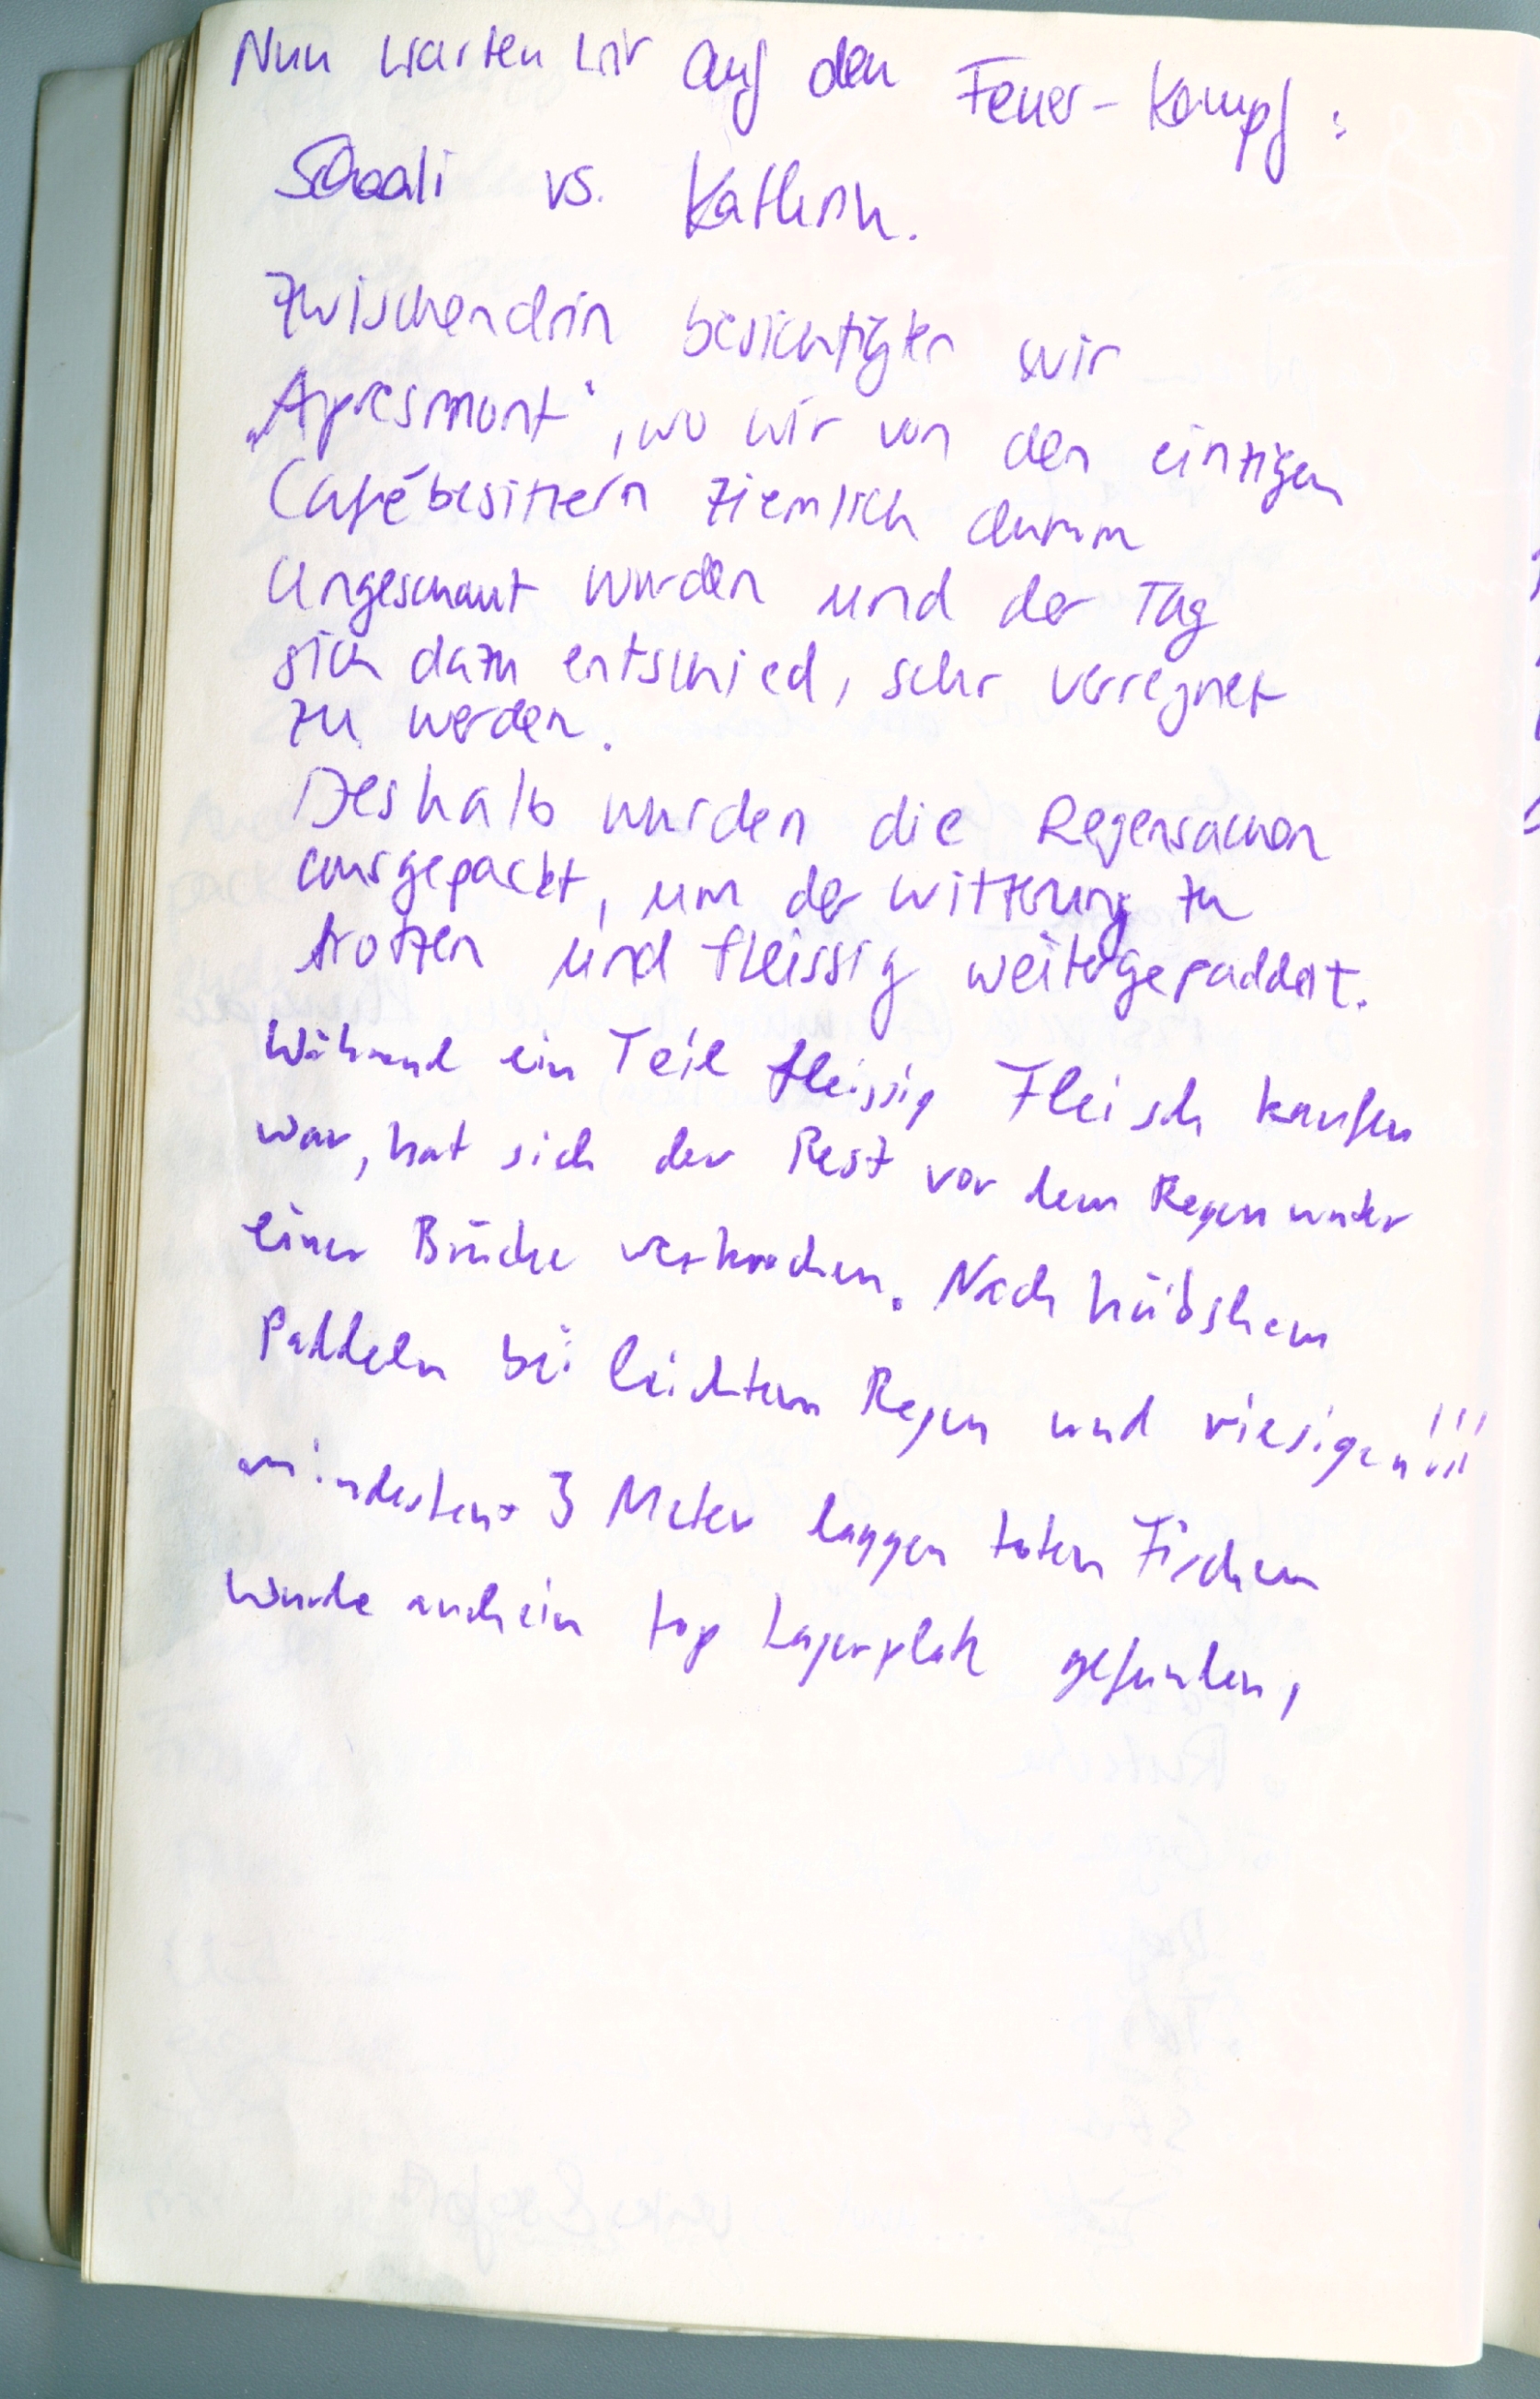 Nun warten wir auf den Feuer-Kampf:
Schaali vs. Kathrin.
Zwischendrin besichtigten wir
„Apresmont", wo wir von den einzigen
Cafébesitzern ziemlich dumm
angeschaut wurden und der Tag
sich dazu entschied, sehr verregnet
zu werden.
Deshalb wurden die Regensachen
ausgepackt, um der Witterung zu
trotzen und fleissig weitergepaddelt.
Während ein Teil fleissig Fleisch kaufen
war, hat sich der Rest vor dem Regen unter
einer Brücke verkrochen. Nach hübschem
Paddeln bei leichtem Regen und riesigen!!!
mindestens 3 Meter langgen toten Fischen
wurde auch ein top Lagerplatz gefunden,